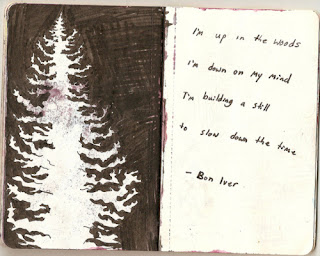 I'm up in the woods
I'm down on my mind
I'm building a still
to slow down the time
- Bon Iver